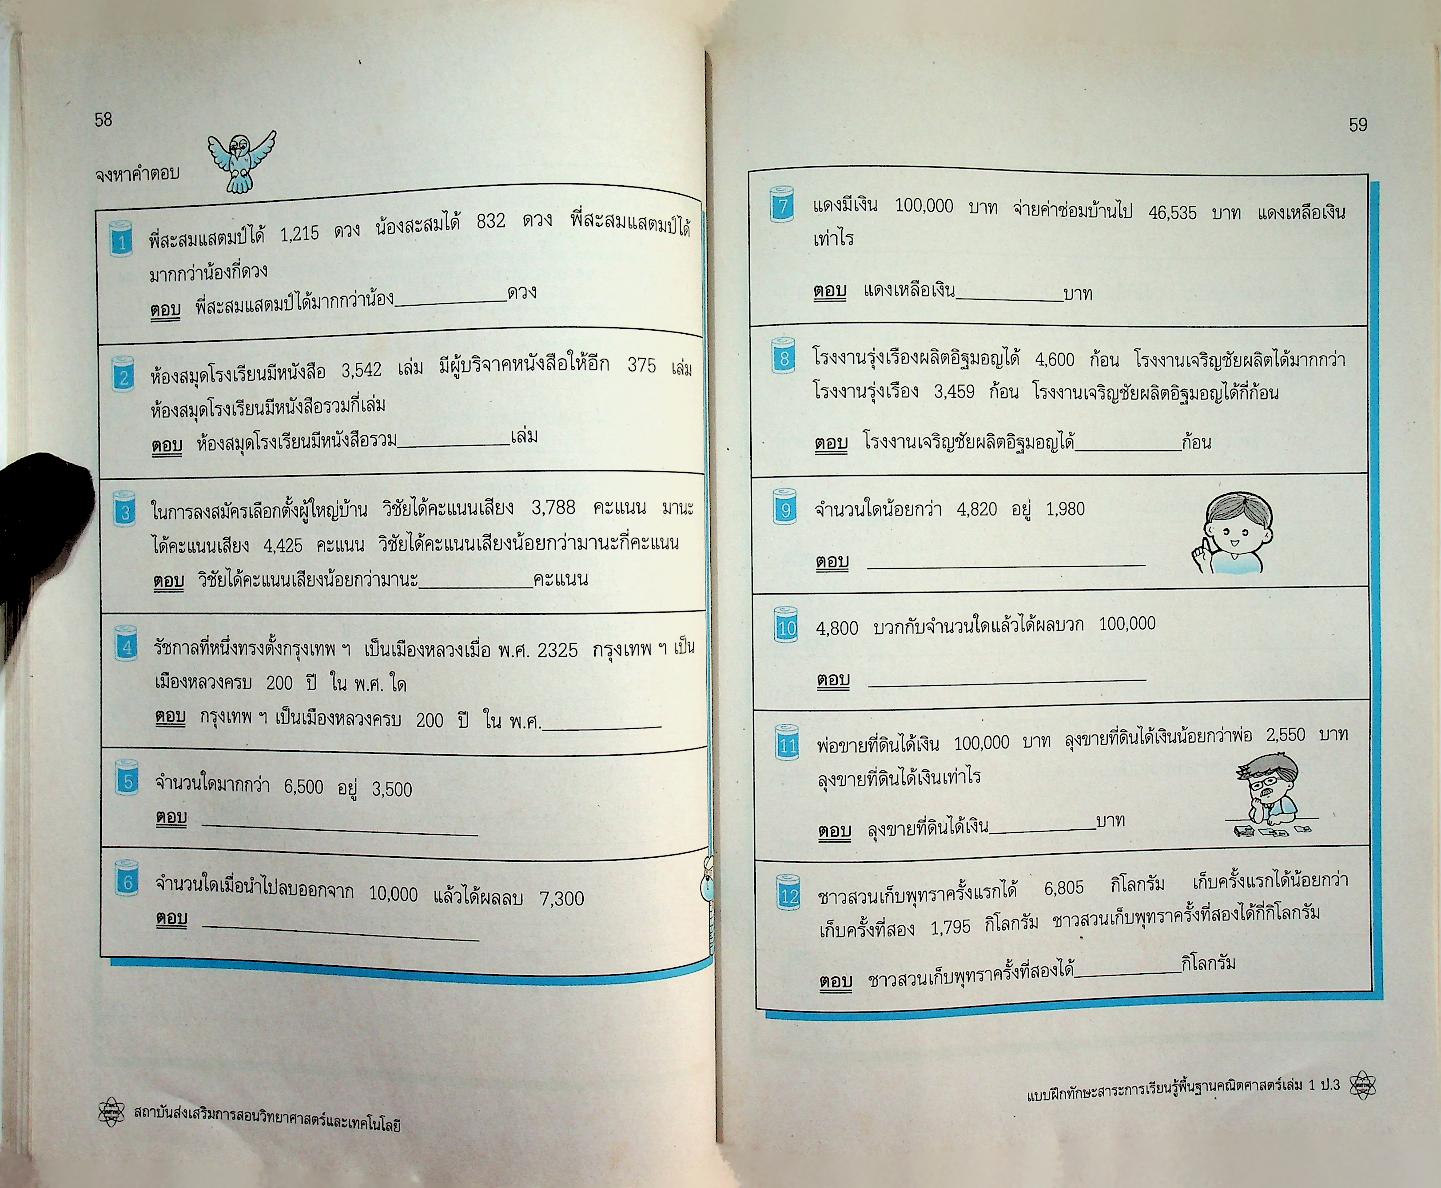 58
จงหาคำตอบ
1 พี่สะสมแสตมป์ได้ 1,215 ดวง น้องสะสมได้ 832 ดวง พี่สะสมแสตมป์ได้
มากกว่าน้องกี่ดวง
ตอบ พี่สะสมแสตมป์ได้มากกว่าน้อง____________ดวง
2 ห้องสมุดโรงเรียนมีหนังสือ 3,542 เล่ม มีผู้บริจาคหนังสือให้อีก 375 เล่ม
ห้องสมุดโรงเรียนมีหนังสือรวมกี่เล่ม
ตอบ ห้องสมุดโรงเรียนมีหนังสือรวม____________เล่ม
3 ในการลงสมัครเลือกตั้งผู้ใหญ่บ้าน วิชัยได้คะแนนเสียง 3,788 คะแนน มานะ
ได้คะแนนเสียง 4,425 คะแนน วิชัยได้คะแนนเสียงน้อยกว่ามานะกี่คะแนน
ตอบ วิชัยได้คะแนนเสียงน้อยกว่ามานะ____________คะแนน
4 รัชกาลที่หนึ่งทรงตั้งกรุงเทพ ฯ เป็นเมืองหลวงเมื่อ พ.ศ. 2325 กรุงเทพ ฯ เป็น
เมืองหลวงครบ 200 ปี ใน พ.ศ. ใด
ตอบ กรุงเทพ ฯ เป็นเมืองหลวงครบ 200 ปี ใน พ.ศ.____________
5 จำนวนใดมากกว่า 6,500 อยู่ 3,500
ตอบ ____________
6 จำนวนใดเมื่อนำไปลบออกจาก 10,000 แล้วได้ผลลบ 7,300
ตอบ ____________
สถาบันส่งเสริมการสอนวิทยาศาสตร์และเทคโนโลยี
59
7 แดงมีเงิน 100,000 บาท จ่ายค่าซ่อมบ้านไป 46,535 บาท แดงเหลือเงิน
เท่าไร
ตอบ แดงเหลือเงิน____________บาท
8 โรงงานรุ่งเรืองผลิตอิฐมอญได้ 4,600 ก้อน โรงงานเจริญชัยผลิตได้มากกว่า
โรงงานรุ่งเรือง 3,459 ก้อน โรงงานเจริญชัยผลิตอิฐมอญได้กี่ก้อน
ตอบ โรงงานเจริญชัยผลิตอิฐมอญได้____________ก้อน
9 จำนวนใดน้อยกว่า 4,820 อยู่ 1,980
ตอบ ____________
10 4,800 บวกกับจำนวนใดแล้วได้ผลบวก 100,000
ตอบ ____________
11 พ่อขายที่ดินได้เงิน 100,000 บาท ลุงขายที่ดินได้เงินน้อยกว่าพ่อ 2,550 บาท
ลุงขายที่ดินได้เงินเท่าไร
ตอบ ลุงขายที่ดินได้เงิน____________บาท
12 ชาวสวนเก็บพุทราครั้งแรกได้ 6,805 กิโลกรัม เก็บครั้งแรกได้น้อยกว่า
เก็บครั้งที่สอง 1,795 กิโลกรัม ชาวสวนเก็บพุทราครั้งที่สองได้กี่กิโลกรัม
ตอบ ชาวสวนเก็บพุทราครั้งที่สองได้____________กิโลกรัม
แบบฝึกทักษะสาระการเรียนรู้พื้นฐานคณิตศาสตร์เล่ม 1 ป.3